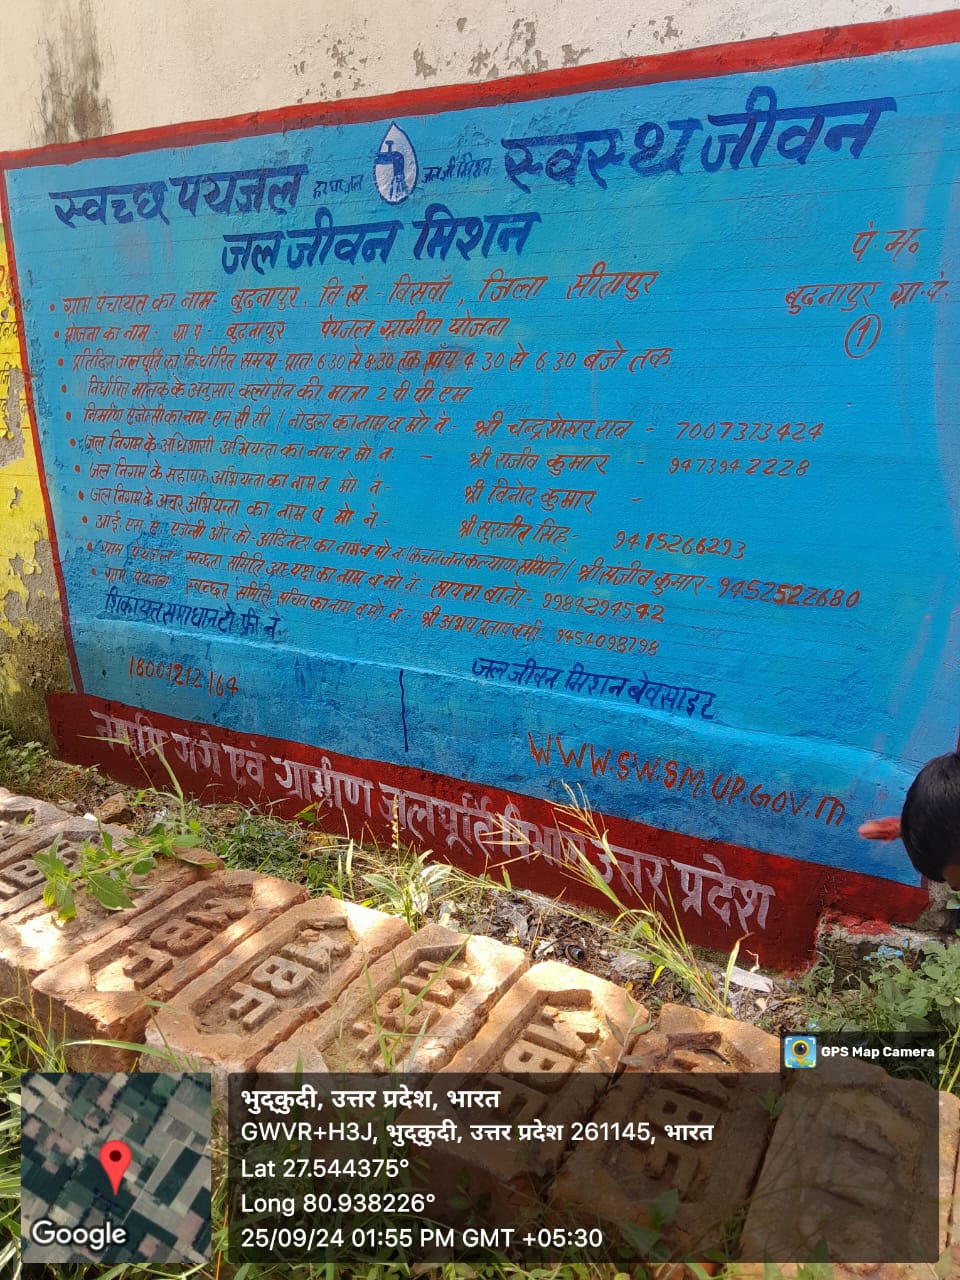 स्वच्छ पेयजल हर घर जल जल जीवन मिशन स्वस्थ जीवन
जल जीवन मिशन
पं. भ.
बुढनापुर ग्रा. पं.
1
• ग्राम पंचायत का नाम- बुढनापुर, वि. खं.- बिसवाँ, जिला सीतापुर
• योजना का नाम- ग्रा. प- बुढनापुर पेयजल ग्रामीण योजना
• प्रतिदिन जलपूर्ति का निर्धारित समय- प्रातः 6.30 से 8.30 तक साँय 4.30 से 6.30 बजे तक
• निर्धारित मानक के अनुसार क्लोरीन की मात्रा 2 पी पी. एम
• निर्माण एजेन्सी का नाम- एन सी सी / नोडल का नाम व मो. नं- श्री चन्द्रशेखर राव - 7007373424
• जल निगम के अधिशासी अभियन्ता का नाम व मो नं. - श्री राजीव कुमार - 9473942228
• जल निगम के सहायक अभियन्ता का नाम व मो नं- श्री विनोद कुमार -
• जल निगम के अवर अभियन्ता का नाम व मो नं- श्री सुरजीत सिंह- 9415266293
• आई. एस. ए. एजेन्सी और को-आर्डिनेटर का नाम व मो नं. कंचन जन कल्याण समिति / श्री संजीव कुमार- 9452522680
• ग्राम पेयजल स्वच्छता समिति अध्यक्ष का नाम व मो. नं- सायरा बानो- 9984294542
• ग्राम पेयजल स्वच्छता समिति सचिव का नाम व मो नं- श्री अभय प्रताप वर्मा 9454098798
शिकायत समाधान टो. फ्री नं.
18001212164
जल जीवन मिशन बेवसाइट
WWW.SWSM.UP.GOV.IN
नमामि गंगे एवं ग्रामीण जलपूर्ति विभाग उत्तर प्रदेश
MBF
MBF
MBF
MBF
GPS Map Camera
भुद्कुदी, उत्तर प्रदेश, भारत
GWVR+H3J, भुद्कुदी, उत्तर प्रदेश 261145, भारत
Lat 27.544375°
Long 80.938226°
25/09/24 01:55 PM GMT +05:30
Google